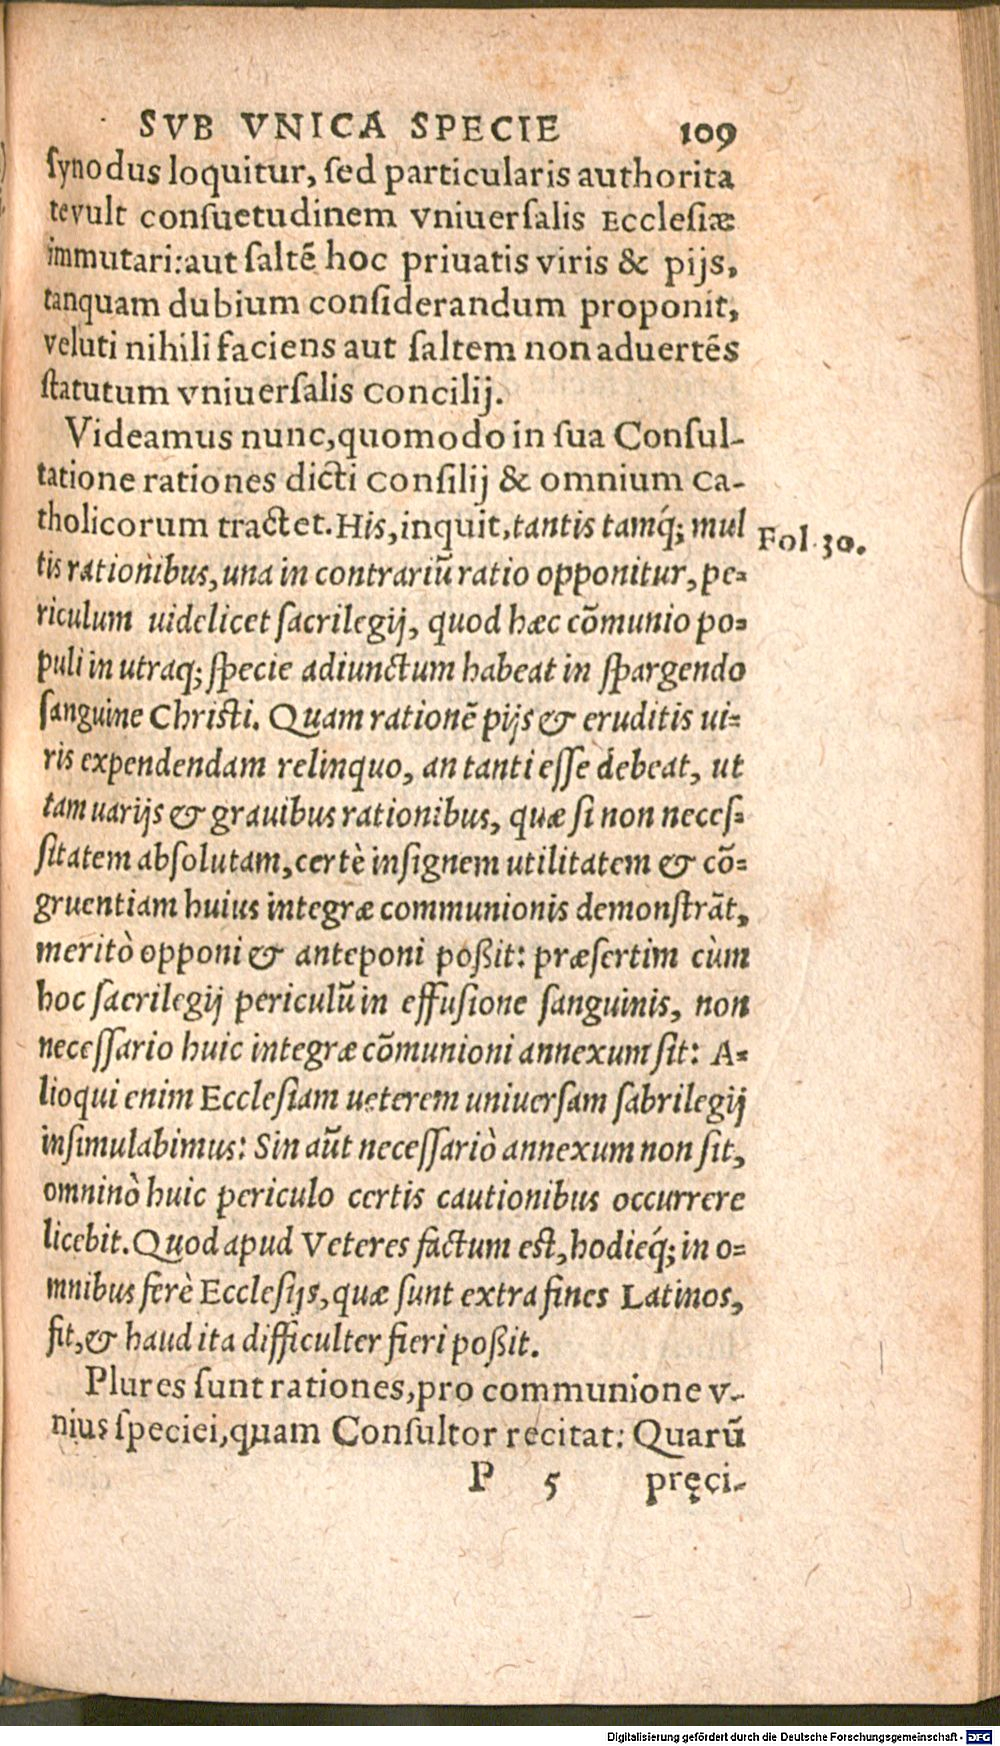 SVB VNICA SPECIE 109
ſynodus loquitur, ſed particularis authorita
te vult conſuetudinem vniuerſalis Eccleſiæ
immutari: aut ſaltē hoc priuatis viris & pijs,
tanquam dubium conſiderandum proponit,
veluti nihili faciens aut ſaltem non aduertēs
ſtatutum vniuerſalis Concilij.
Videamus nunc, quomodo in ſua Conſul-
tatione rationes dicti Conſilij & omnium Ca-
tholicorum tractet. His, inquit, tantis tamq́; mul
Fol. 30.
tis rationibus, una in contrariũ ratio opponitur, pe-
riculum uidelicet ſacrilegij, quod hæc cõmunio po-
puli in utraq; ſpecie adiunctum habeat in ſpargendo
ſanguine Chriſti. Quam rationē pijs & eruditis ui-
ris expendendam relinquo, an tanti eſſe debeat, ut
tam uarijs & grauibus rationibus, quæ ſi non neceſ-
ſitatem abſolutam, certè inſignem utilitatem & cõ-
gruentiam huius integræ communionis demonſtrãt,
meritò opponi & anteponi poßit: præſertim cùm
hoc ſacrilegij periculũ in effuſione ſanguinis, non
neceſſario huic integræ cõmunioni annexum ſit: A-
lioqui enim Eccleſiam ueterem uniuerſam ſabrilegij
inſimulabimus: Sin aũt neceſſariò annexum non ſit,
omninò huic periculo certis cautionibus occurrere
licebit. Quod apud Veteres factum eſt, hodieq́; in o-
mnibus ferè Eccleſijs, quæ ſunt extra fines Latinos,
fit, & haud ita difficulter fieri poßit.
Plures ſunt rationes, pro communione v-
nius ſpeciei, quam Conſultor recitat: Quarũ
P 5 pręci-
Digitalisierung gefördert durch die Deutsche Forschungsgemeinschaft - DFG